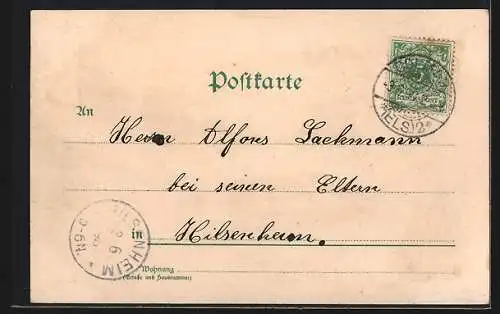 Postkarte
An
Herrn Alfons Lachmann
bei seinen Eltern
in Hilsenheim.
Wohnung
(Straße und Hausnummer)
(ELS)2*